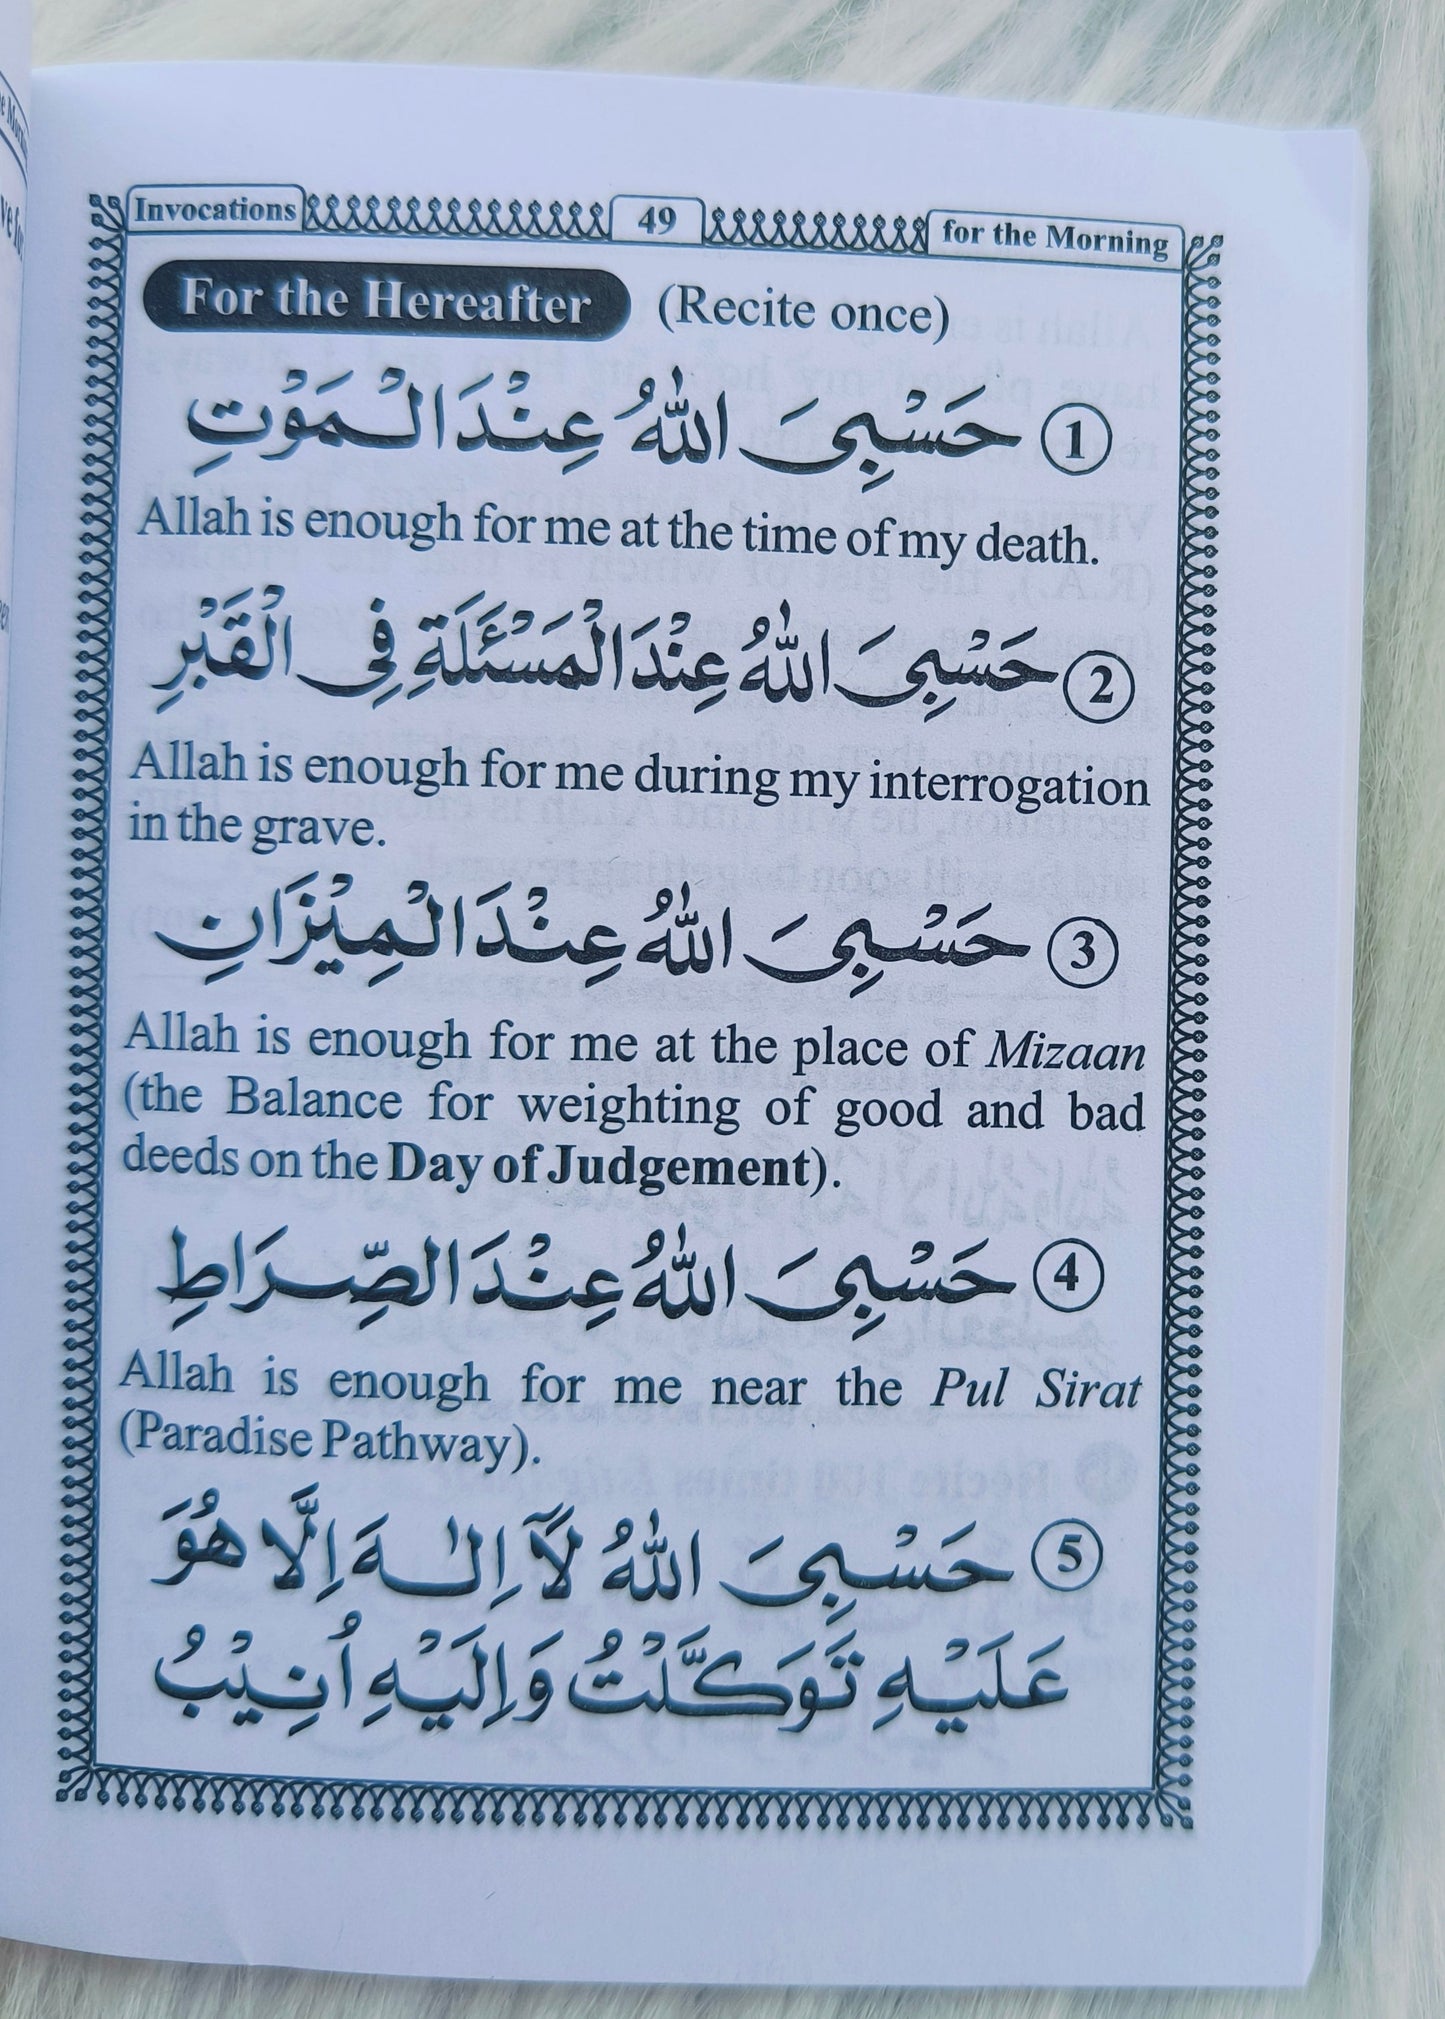 Invocations 49 for the Morning
For the Hereafter (Recite once)
① حَسْبِىَ اللّٰهُ عِنْدَ الْمَوْتِ
Allah is enough for me at the time of my death.
② حَسْبِىَ اللّٰهُ عِنْدَ الْمَسْئَلَةِ فِى الْقَبْرِ
Allah is enough for me during my interrogation
in the grave.
③ حَسْبِىَ اللّٰهُ عِنْدَ الْمِيْزَانِ
Allah is enough for me at the place of Mizaan
(the Balance for weighting of good and bad
deeds on the Day of Judgement).
④ حَسْبِىَ اللّٰهُ عِنْدَ الصِّرَاطِ
Allah is enough for me near the Pul Sirat
(Paradise Pathway).
⑤ حَسْبِىَ اللّٰهُ لَآ اِلٰهَ اِلَّا هُوَ
عَلَيْهِ تَوَكَّلْتُ وَاِلَيْهِ اُنِيْبُ